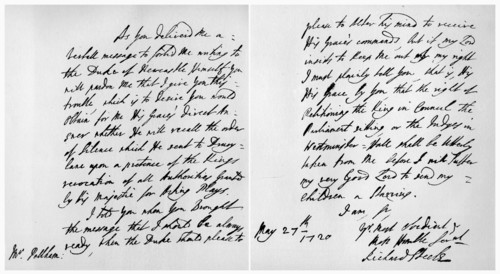 As You delivered me a
verball message to forbid me writing to
the Duke of Newcastle Himself You
will pardon me that I give You this
trouble which is to desire You would
Obtain for me His Grace's Direct An-
swer whether He will recall the order
of Silence which He sent to Drury-
lane upon a pretence of the Kings
revocation of all Authorities Granted
by His Majestie for Acting Plays.
I told You when You brought
the message that I should be always
ready, when the Duke should please to
Mr. Pelham:
please to alter his mind to receive
His Grace's commands, but if my Lord
insists to keep me out of my right
I must plainly tell You that is, His
His Grace by You that the right of
Petitioning the King in Council, the
Parliament sitting or the Judges in
Westminster-Hall shall be utterly
taken from me before I will suffer
my very Good Lord to send my
children a Starving.
I am Sr
Yr Most Obedient &
Most Humble Servt
Richard Steele
May 27th
1720